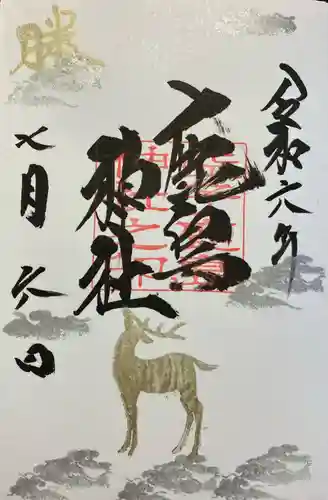 令和六年
鹿島
神社
勝
七月六日